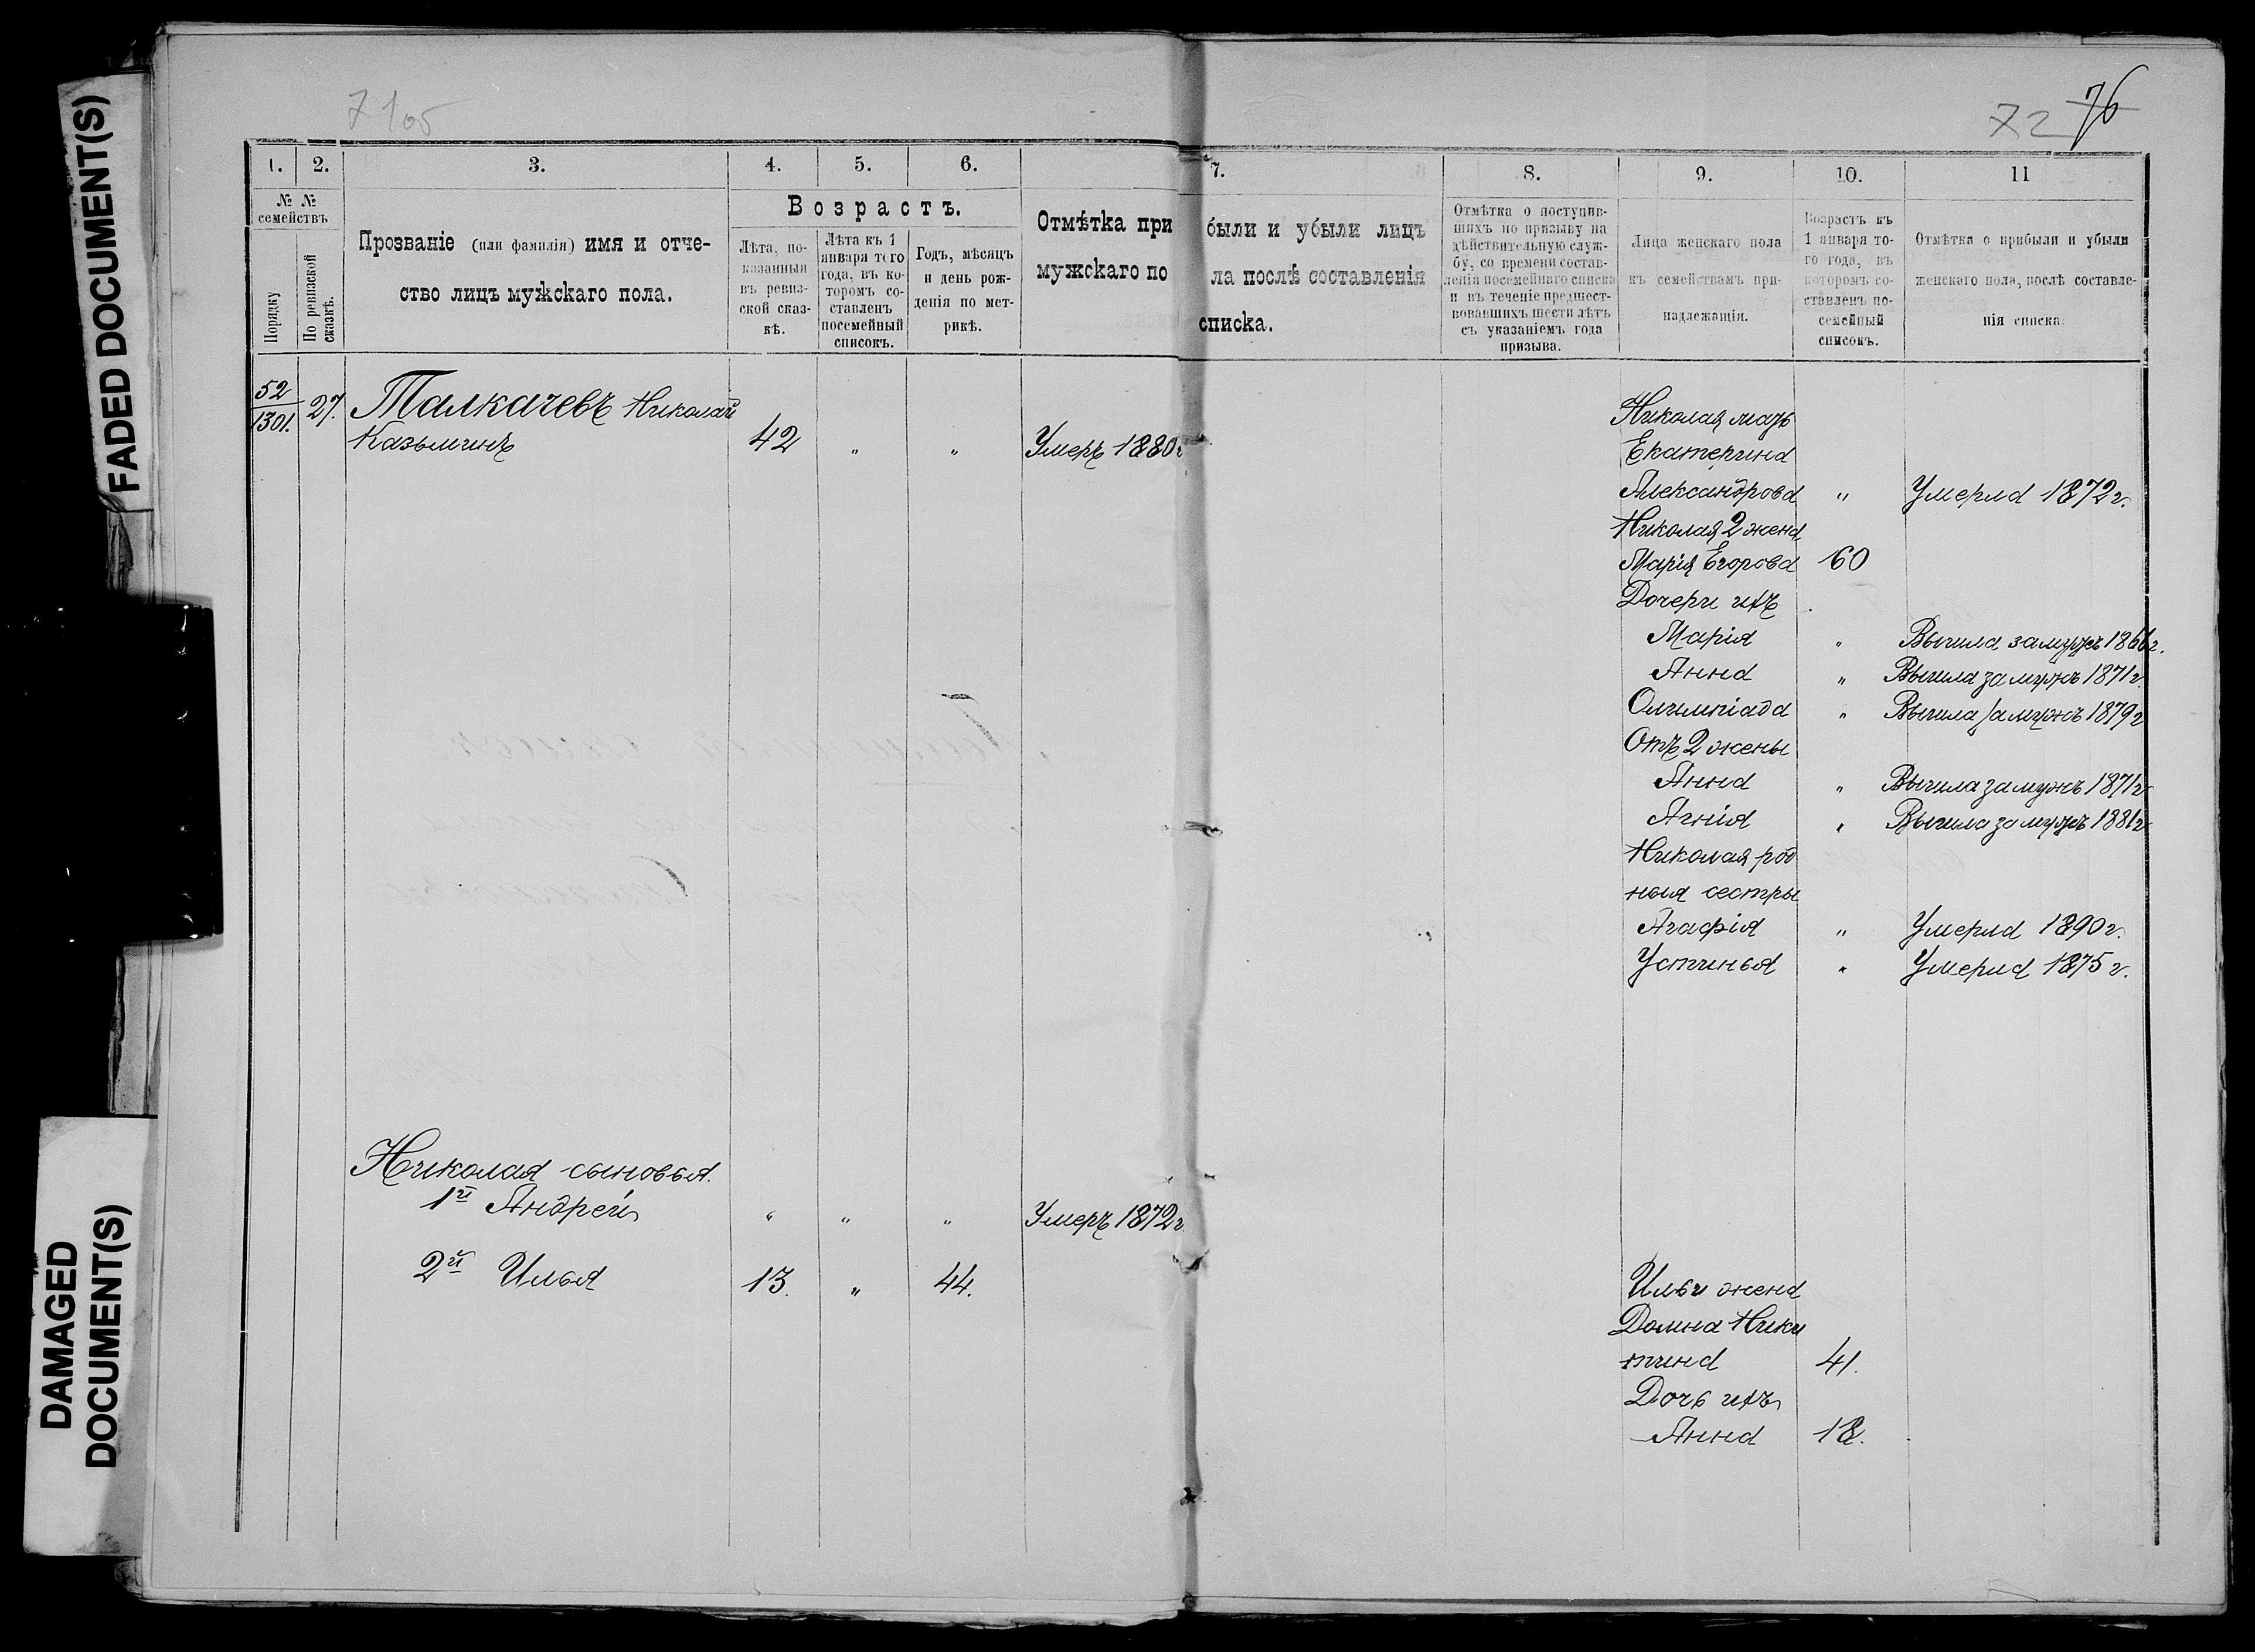 FADED DOCUMENT(S)
DAMAGED
DOCUMENT(S)
7105
72 76
1. 2. 3. 4. 5. 6. 7. 8. 9. 10. 11
№ №
семействъ
Порядку
По ревизской
сказкѣ.
Прозваніе (или фамилія) имя и отче-
ство лицъ мужскаго пола.
Возрастъ.
Лѣта, по-
казанныя
въ ревиз-
ской сказ-
кѣ.
Лѣта къ 1
января того
года, въ ко-
торомъ со-
ставленъ
посемейный
списокъ.
Годъ, мѣсяцъ
и день рож-
денія по мет-
рикѣ.
Отмѣтка при были и убыли лицъ
мужскаго по ла послѣ составленія
списка.
Отмѣтка о поступив-
шихъ по призыву на
дѣйствительную служ-
бу, со времени состав-
ленія посемейнаго списка
и въ теченіе предшест-
вовавшихъ шести лѣтъ
съ указаніемъ года
призыва.
Лица женскаго пола
къ семействамъ при-
надлежащія.
Возрастъ къ
1 января то-
го года, въ
которомъ со-
ставленъ по-
семейный
списокъ.
Отмѣтка о прибыли и убыли
женскаго пола, послѣ составле-
нія списка.
52
1301. 27. Талкачевъ Николай
Казьминъ 42 " " Умеръ 1880г
Николая мать
Екатерина
Александрова " Умерла 1872г.
Николая 2 жена
Марія Егорова 60
Дочери ихъ
Марія " Вышла замужъ 1866г.
Анна " Вышла замужъ 1871г
Олимпіада " Вышла замужъ 1879г
Отъ 2 жены
Анна " Вышла замужъ 1871г
Агнія " Вышла замужъ 1881г
Николая род
ныя сестры
Агафія " Умерла 1890г.
Устинья " Умерла 1875г.
Николая сыновья.
1й Андрей " " " Умеръ 1872г
2й Илья 13. " 44.
Ильи жена
Домна Ники
тина 41.
Дочь ихъ
Анна 18.